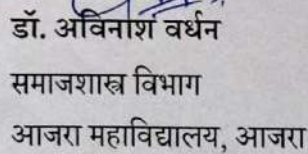 डॉ. अविनाश वर्धन
समाजशास्त्र विभाग
आजरा महाविद्यालय, आजरा